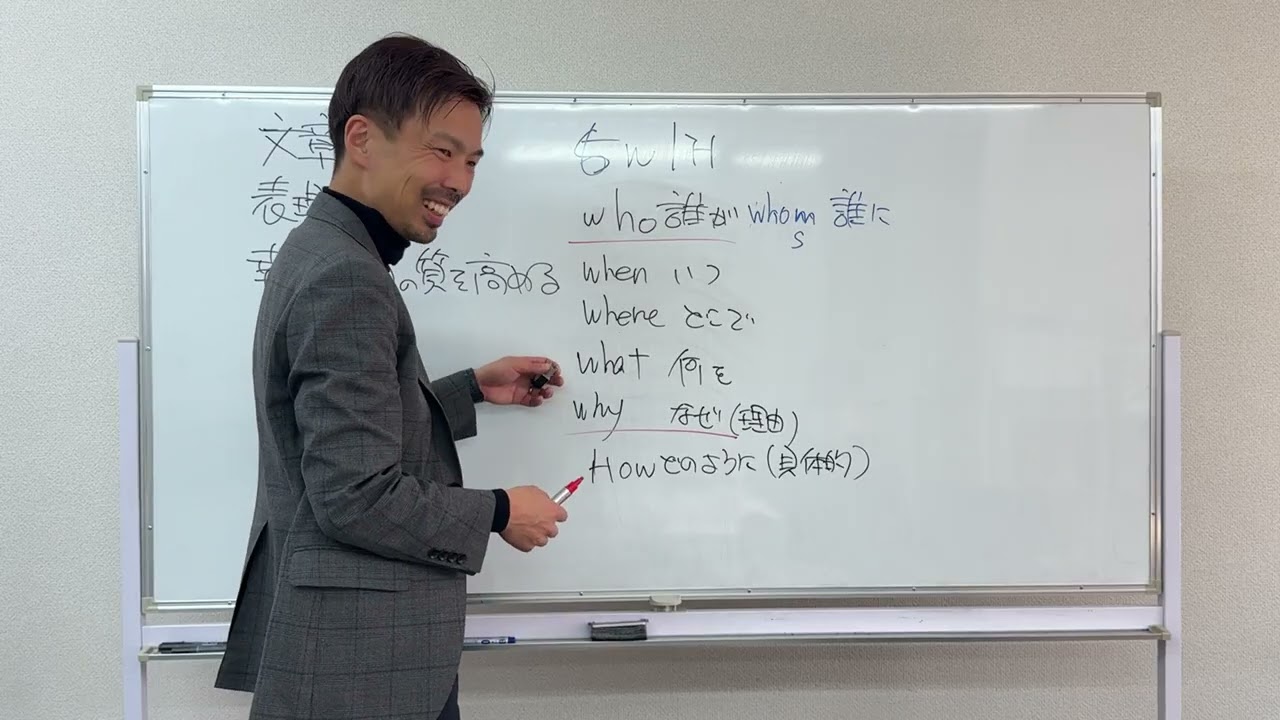 文章
表
の質を高める
6W1H
who 誰が whom 誰に
s
when いつ
where どこで
what 何を
why なぜ(理由)
How どのように(具体的)